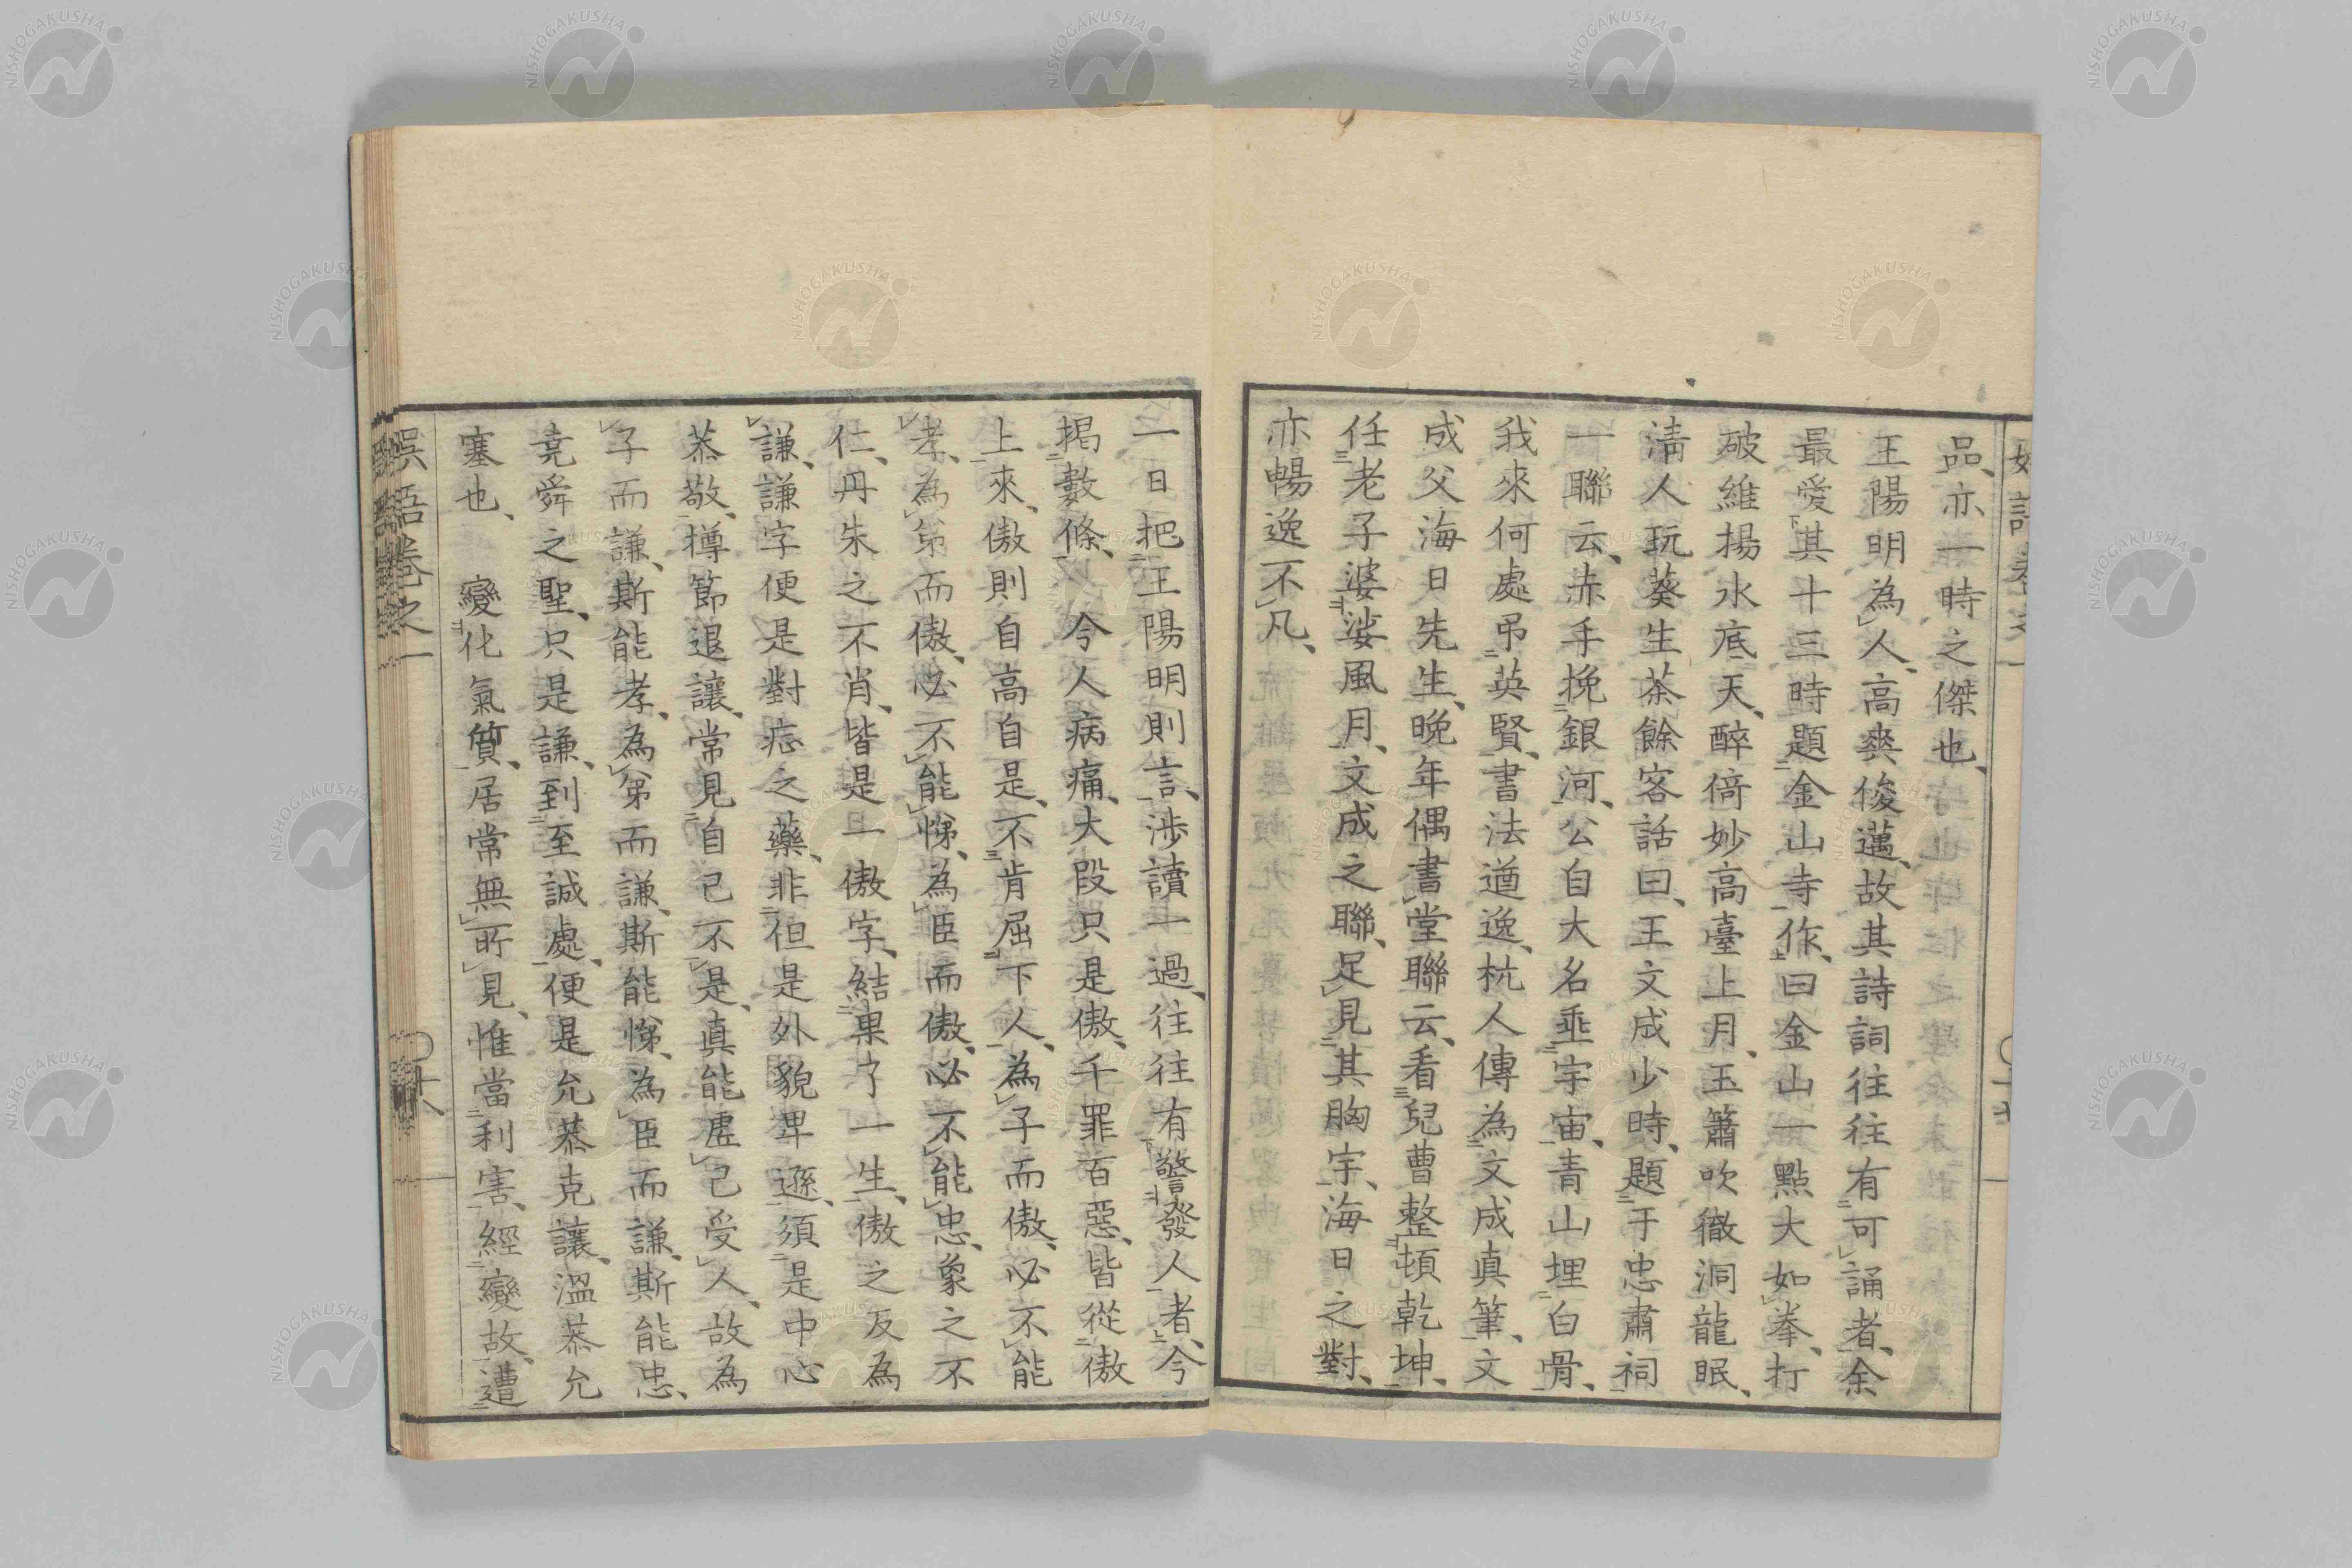 品、亦一時之傑也、
王陽明為人、高爽俊邁、故其詩詞往往有可誦者、余
最愛其十三時題金山寺作、曰金山一點大如拳、打
破維揚水底天、醉倚妙高臺上月、玉簫吹徹洞龍眠、
淸人玩葵生茶餘客話曰、王文成少時、題于忠肅祠
一聯云、赤手挽銀河、公自大名垂宇宙、青山埋白骨、
我來何處吊英賢、書法遒逸、杭人傳為文成真筆、文
成父海日先生、晩年偶書堂聯云、看兒曹整頓乾坤、
任老子婆娑風月、文成之聯、足見其胸宇、海日之對、
亦暢逸不凡、
一日把王陽明則言、涉讀一過、往往有警發人者、今
揭數條、今人病痛、大段只是傲、千罪百惡、皆從傲
上來、傲則自高自是、不肯屈下人、為子而傲、必不能
孝、為弟而傲、必不能悌、為臣而傲、必不能忠、象之不
仁、丹朱之不肖、皆是一傲字、結果了一生、傲之反為
謙、謙字便是對症之藥、非但是外貌卑遜、須是中心
恭敬、撙節退讓、常見自己不是、真能虛己受人、故為
子而謙、斯能孝、為弟而謙、斯能悌、為臣而謙、斯能忠、
堯舜之聖、只是謙、到至誠處、便是允恭克讓、溫恭允
塞也、 變化氣質、居常無所見、惟當利害、經變故、遭
娯語卷之一 〇十八